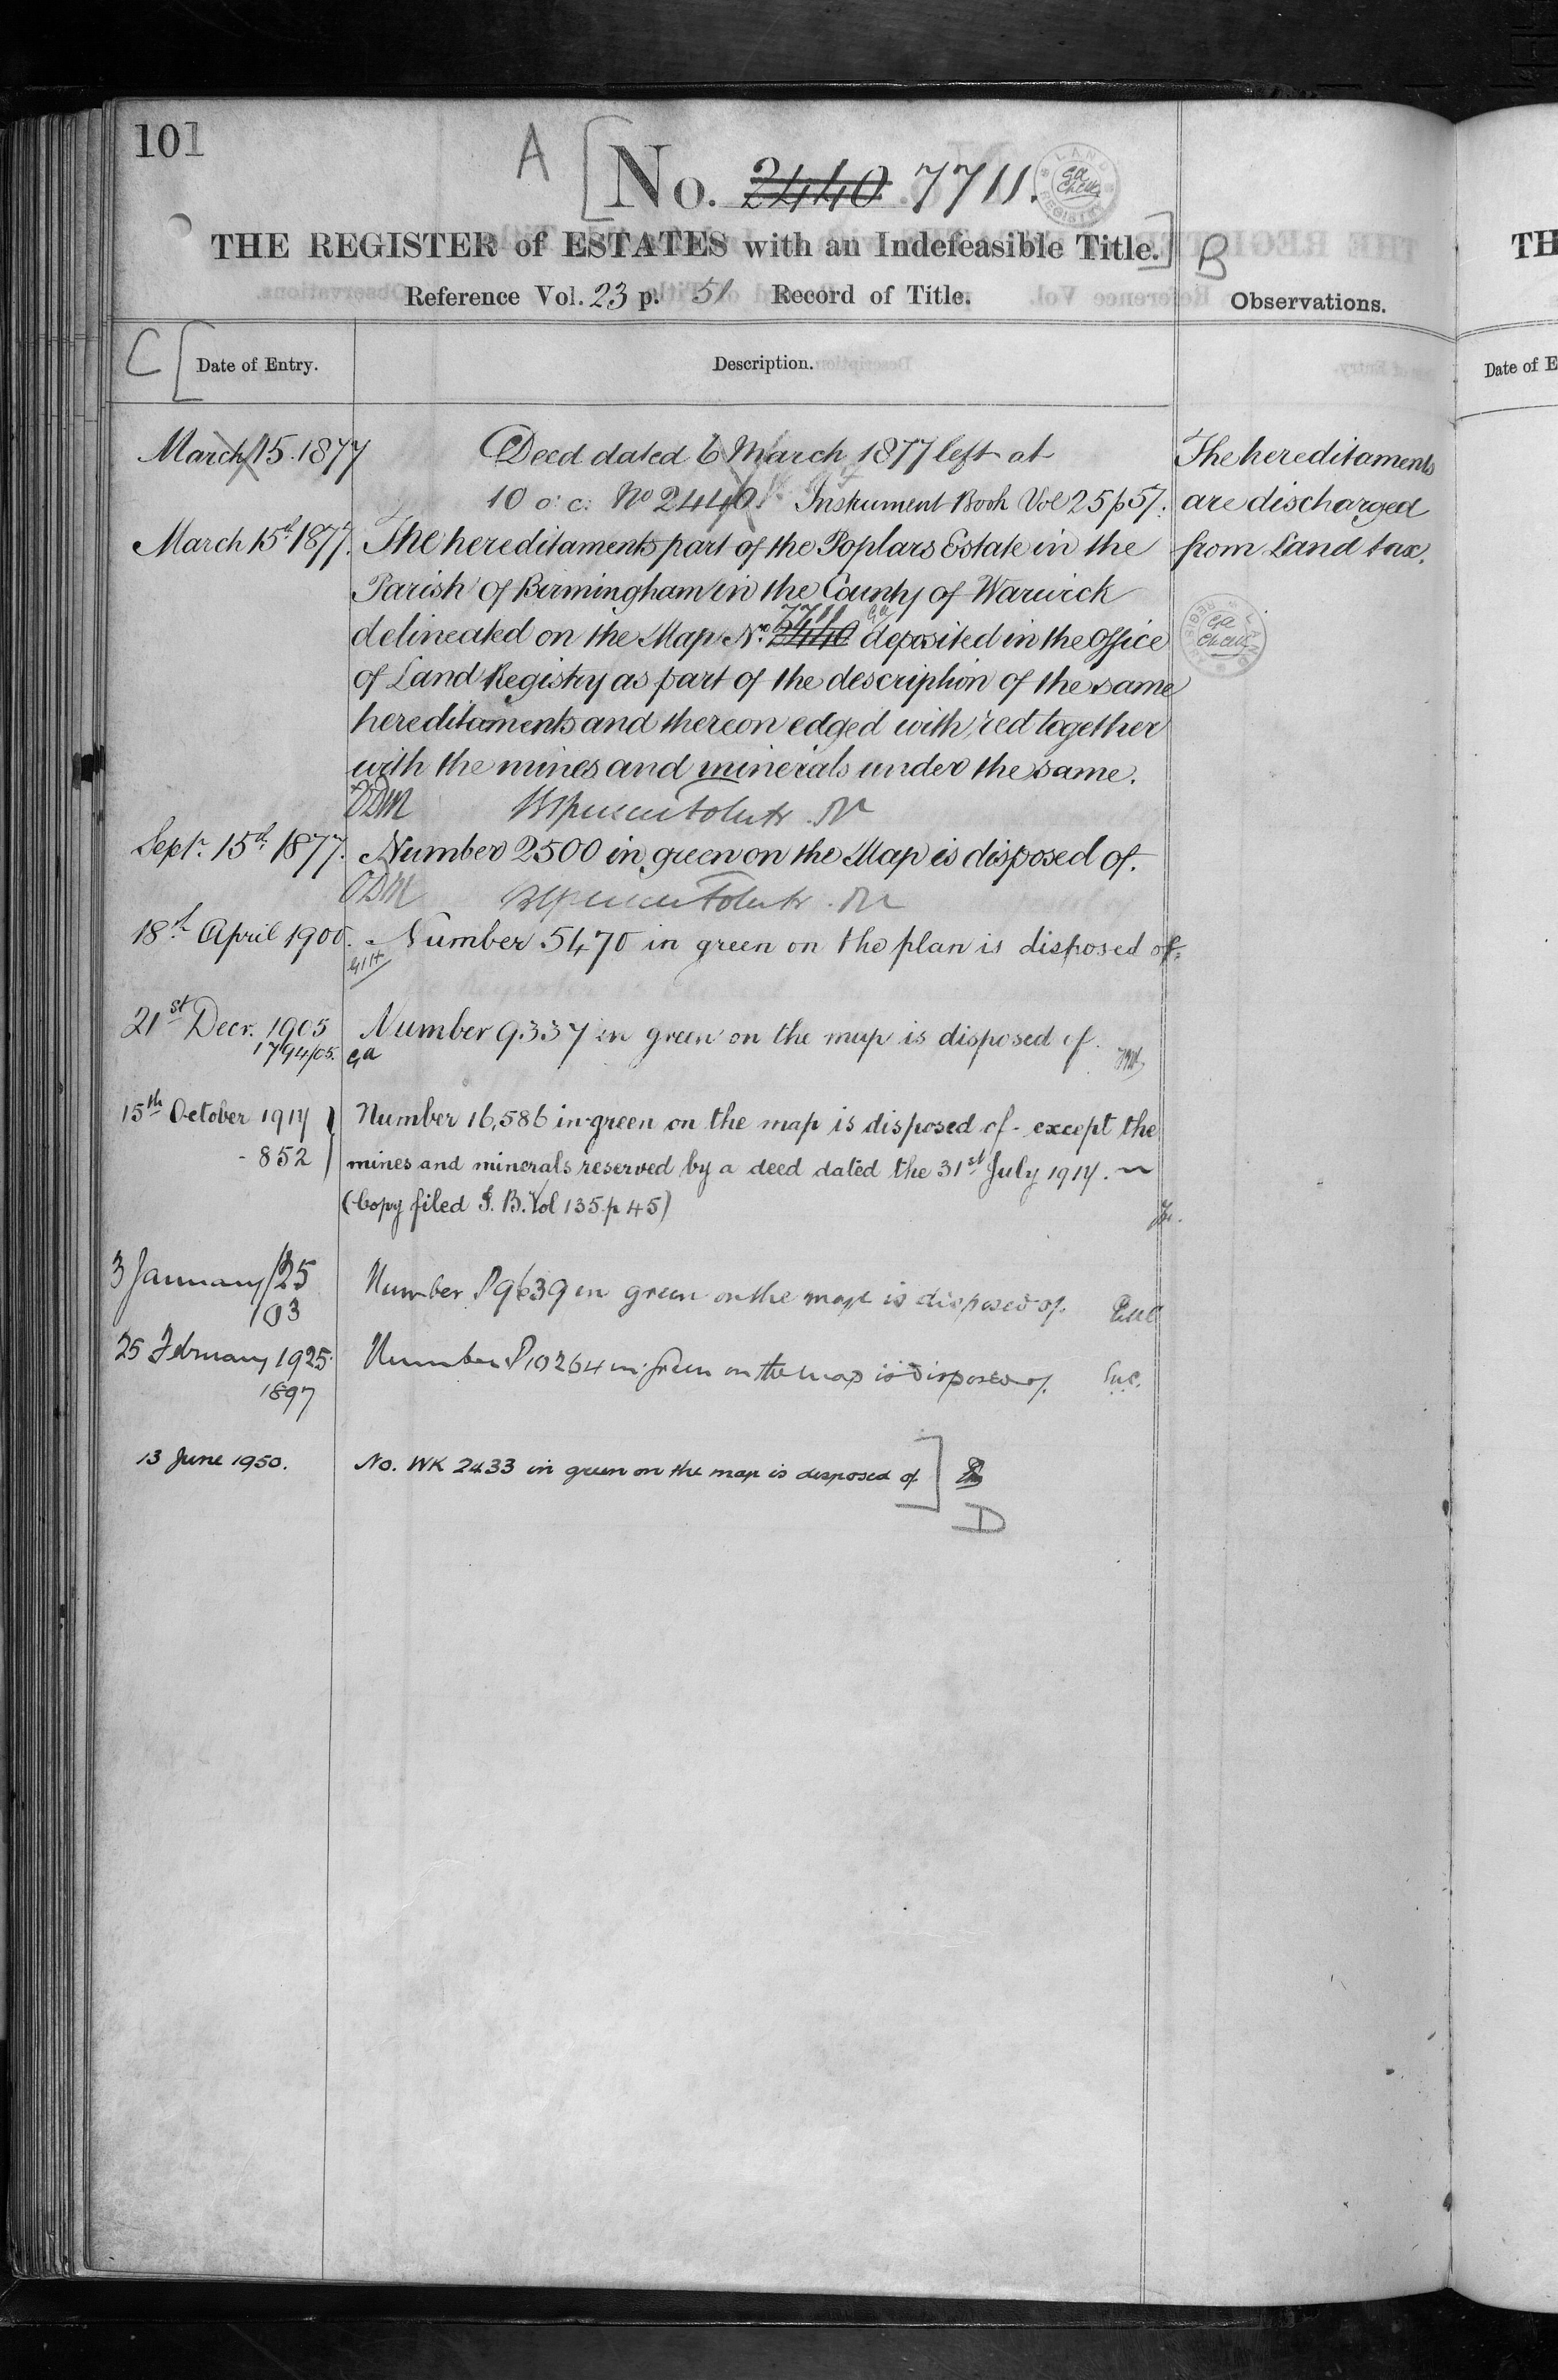 101
A [ No. 2440 7711.
THE REGISTER of ESTATES with an Indefeasible Title. ] B
Reference Vol. 23 p. 51 Record of Title.
Observations.
C [ Date of Entry.
Description.
Date of E
TH
March 15. 1877 Deed dated 6 March 1877 left at
10 o'c. No 2440. Instrument Book Vol 25 p 57.
March 15th 1877. The hereditaments part of the Poplars Estate in the
Parish of Birmingham in the County of Warwick
delineated on the Map No. 2440 7711 deposited in the Office
of Land Registry as part of the description of the same
hereditaments and thereon edged with red together
with the mines and minerals under the same.
The hereditaments
are discharged
from Land tax.
LAND REGISTRY
ODM
Sept. 15th 1877. Number 2500 in green on the Map is disposed of.
ODM
18th April 1900. Number 5470 in green on the plan is disposed of.
21st Decr. 1905 Number 9337 in green on the map is disposed of.
1794/05. GA
15th October 1914 } Number 16,586 in green on the map is disposed of - except the
- 852 } mines and minerals reserved by a deed dated the 31st July 1914. ~
(Copy filed I. B. Vol 135 p 45)
3 January /25 Number P9639 in green on the map is disposed of.
103
25 February 1925. Number P10264 in green on the map is disposed of.
1897
13 June 1950. No. WK 2433 in green on the map is disposed of ]
D